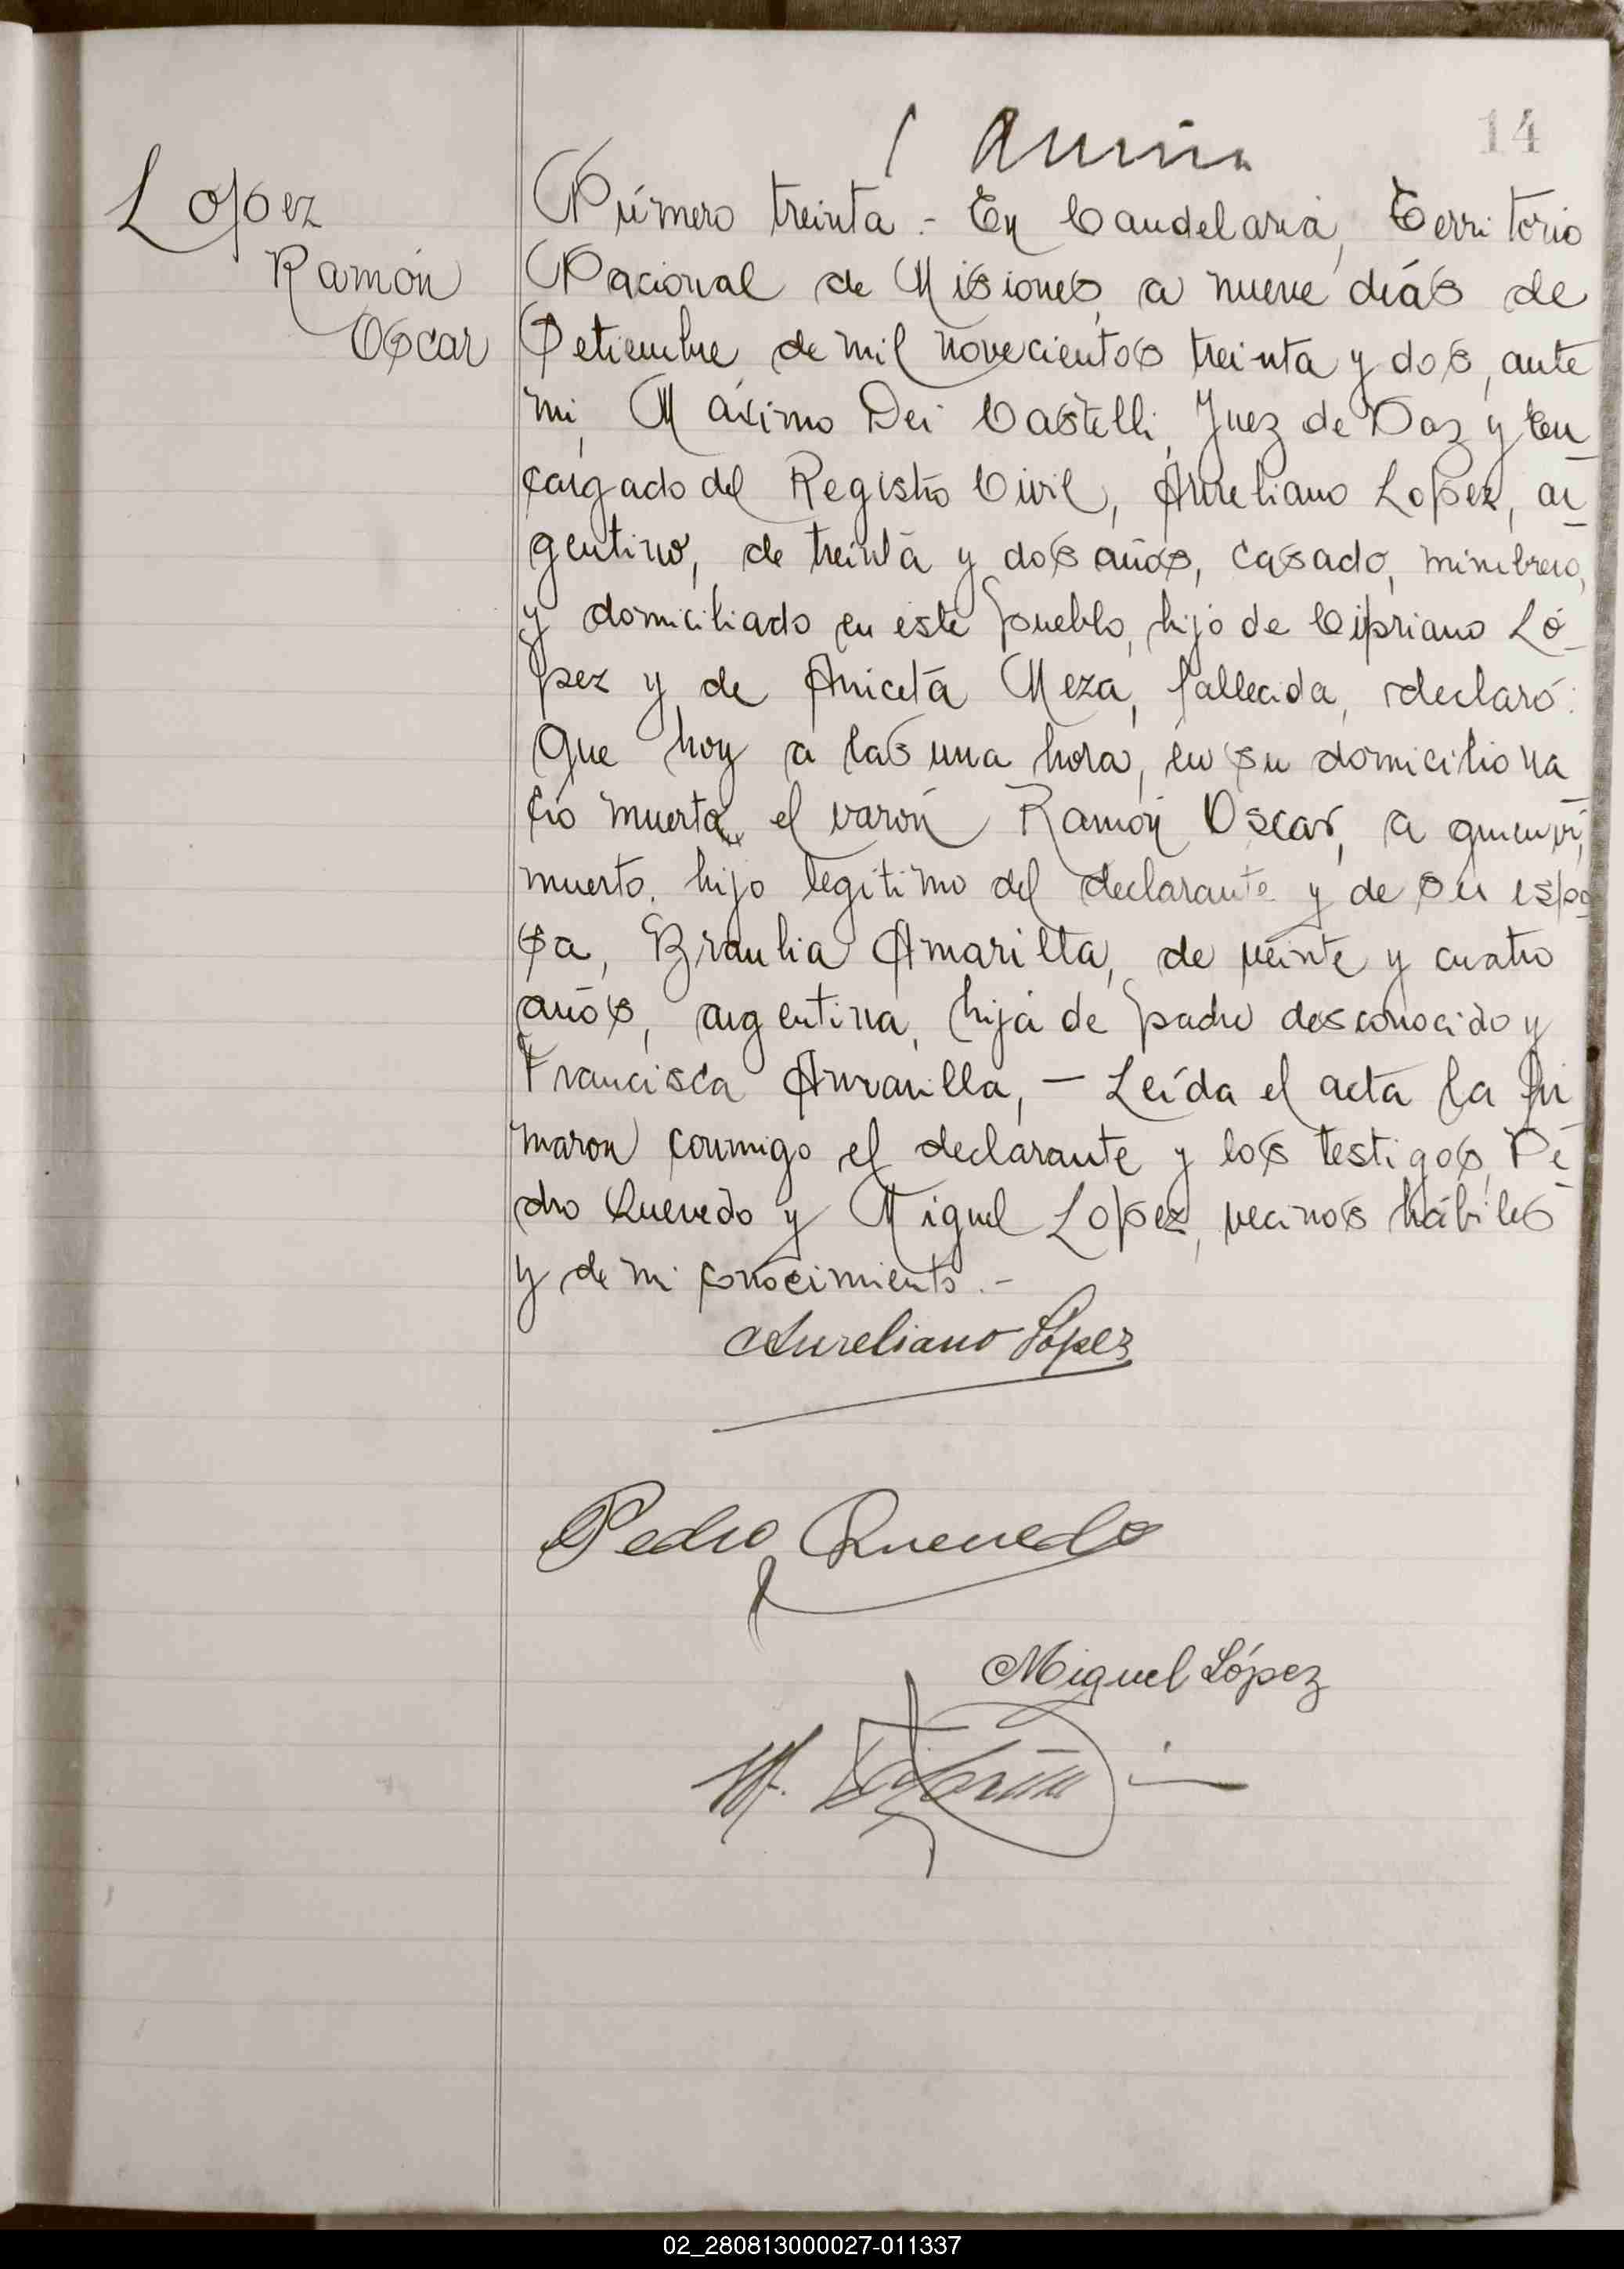 14
Lopez
Ramón
Oscar
Número treinta.- En Candelaria, Territorio
Nacional de Misiones, a nueve días de
Setiembre de mil novecientos treinta y dos, ante
mi, Máximo Dei Castelli, Juez de Paz y En
cargado del Registro Civil, Aureliano Lopez, ar
gentino, de treinta y dos años, casado, mimbrero,
y domiciliado en este pueblo, hijo de Cipriano Ló
pez y de Aniceta Meza, fallecida, declaró:
Que hoy a las una hora, en su domicilio na
ció muerto el varón Ramón Oscar, a quien vi
muerto, hijo legitimo del declarante y de su espo
sa, Braulia Amarilla, de veinte y cuatro
años, argentina, hija de padre desconocido y
Francisca Amarilla, — Leída el acta la fir
maron conmigo el declarante y los testigos, Pe
dro Quevedo y Miguel Lopez, vecinos hábiles
y de mi conocimiento.-
Aureliano López
Pedro Quevedo
Miguel López
02_280813000027-011337